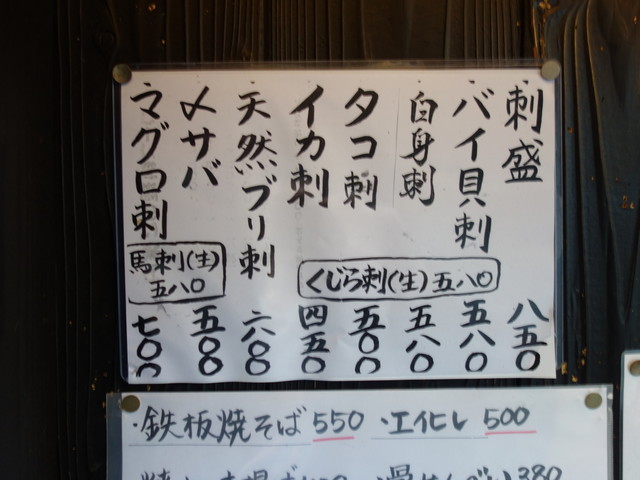 ・刺盛 八五〇
・バイ貝刺 五八〇
・白身刺 五八〇
・タコ刺 五〇〇
・イカ刺 四五〇
・天然ブリ刺 六〇〇
・〆サバ 五〇〇
・マグロ刺 七〇〇
くじら刺(生)五八〇
馬刺(生)
五八〇
・鉄板焼そば 550 ・エイヒレ 500
380